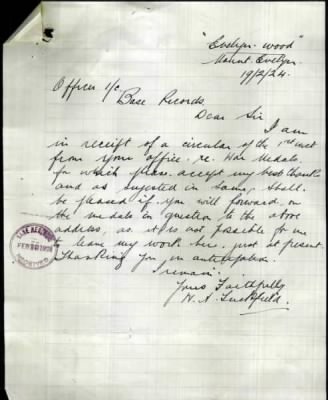 "Evelyn-wood"
Mount Evelyn
19/2/24.
Officer i/c
Base Records
Dear Sir
I am
in receipt of a circular of the 1st inst
from your office, re. War Medals.
for which please accept my best thanks
and as sugested in same, shall
be pleased if you will forward on
the medals in question to the above
address, as it is not possible for me
to leave my work here just at present
Thanking you in anticipation.
I remain.
Yours Faithfully
RECEIVED